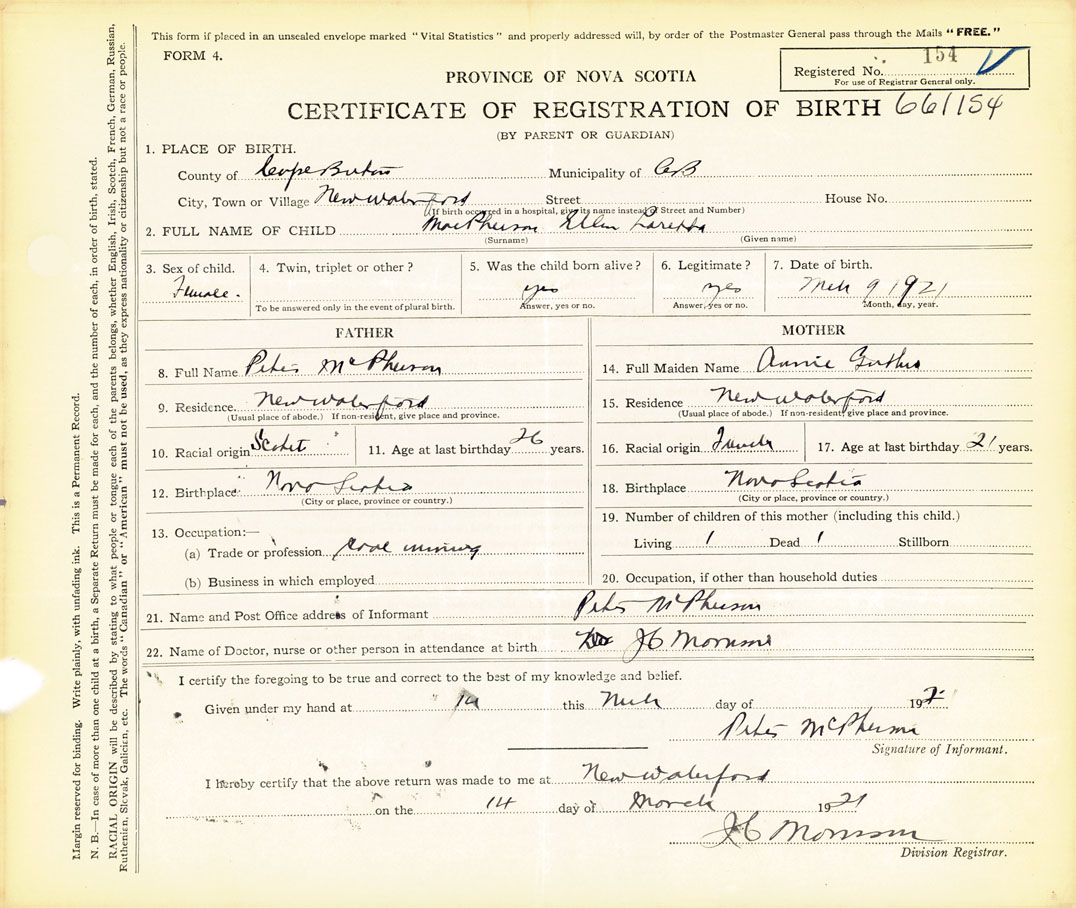 This form if placed in an unsealed envelope marked "Vital Statistics" and properly addressed will, by order of the Postmaster General pass through the Mails "FREE."
FORM 4.
Registered No. 154
For use of Registrar General only.
PROVINCE OF NOVA SCOTIA
CERTIFICATE OF REGISTRATION OF BIRTH 661154
(BY PARENT OR GUARDIAN)
1. PLACE OF BIRTH.
County of Cape Breton Municipality of CB
City, Town or Village New Waterford Street House No.
(If birth occurred in a hospital, give its name instead of Street and Number)
2. FULL NAME OF CHILD MacPherson Ellen Loretta
(Surname) (Given name)
3. Sex of child. 4. Twin, triplet or other? 5. Was the child born alive? 6. Legitimate? 7. Date of birth.
Female. yes yes Mch 9 1921
To be answered only in the event of plural birth. Answer, yes or no. Answer, yes or no. Month, day, year.
FATHER
8. Full Name Peter McPherson
9. Residence. New Waterford
(Usual place of abode.) If non-resident, give place and province.
10. Racial origin 11. Age at last birthday 26 years.
12. Birthplace Nova Scotia
(City or place, province or country.)
13. Occupation:—
(a) Trade or profession Coal mining
(b) Business in which employed
MOTHER
14. Full Maiden Name Annie
15. Residence New Waterford
(Usual place of abode.) If non-resident, give place and province.
16. Racial origin 17. Age at last birthday 21 years.
18. Birthplace Nova Scotia
(City or place, province or country.)
19. Number of children of this mother (including this child.)
Living 1 Dead 1 Stillborn
20. Occupation, if other than household duties
21. Name and Post Office address of Informant Peter McPherson
22. Name of Doctor, nurse or other person in attendance at birth JC Morrison
I certify the foregoing to be true and correct to the best of my knowledge and belief.
Given under my hand at 14 this Mch day of 192
Peter McPherson
Signature of Informant.
I hereby certify that the above return was made to me at New Waterford
on the 14 day of March 1921
JC Morrison
Division Registrar.
Margin reserved for binding. Write plainly, with unfading ink. This is a Permanent Record.
N. B.—In case of more than one child at a birth, a Separate Return must be made for each, and the number of each, in order of birth, stated.
RACIAL ORIGIN will be described by stating to what people or tongue each of the parents belongs, whether English, Irish, Scotch, French, German, Russian,
Ruthenian, Slovak, Galician, etc. The words "Canadian" or "American" must not be used, as they express nationality or citizenship but not a race or people.